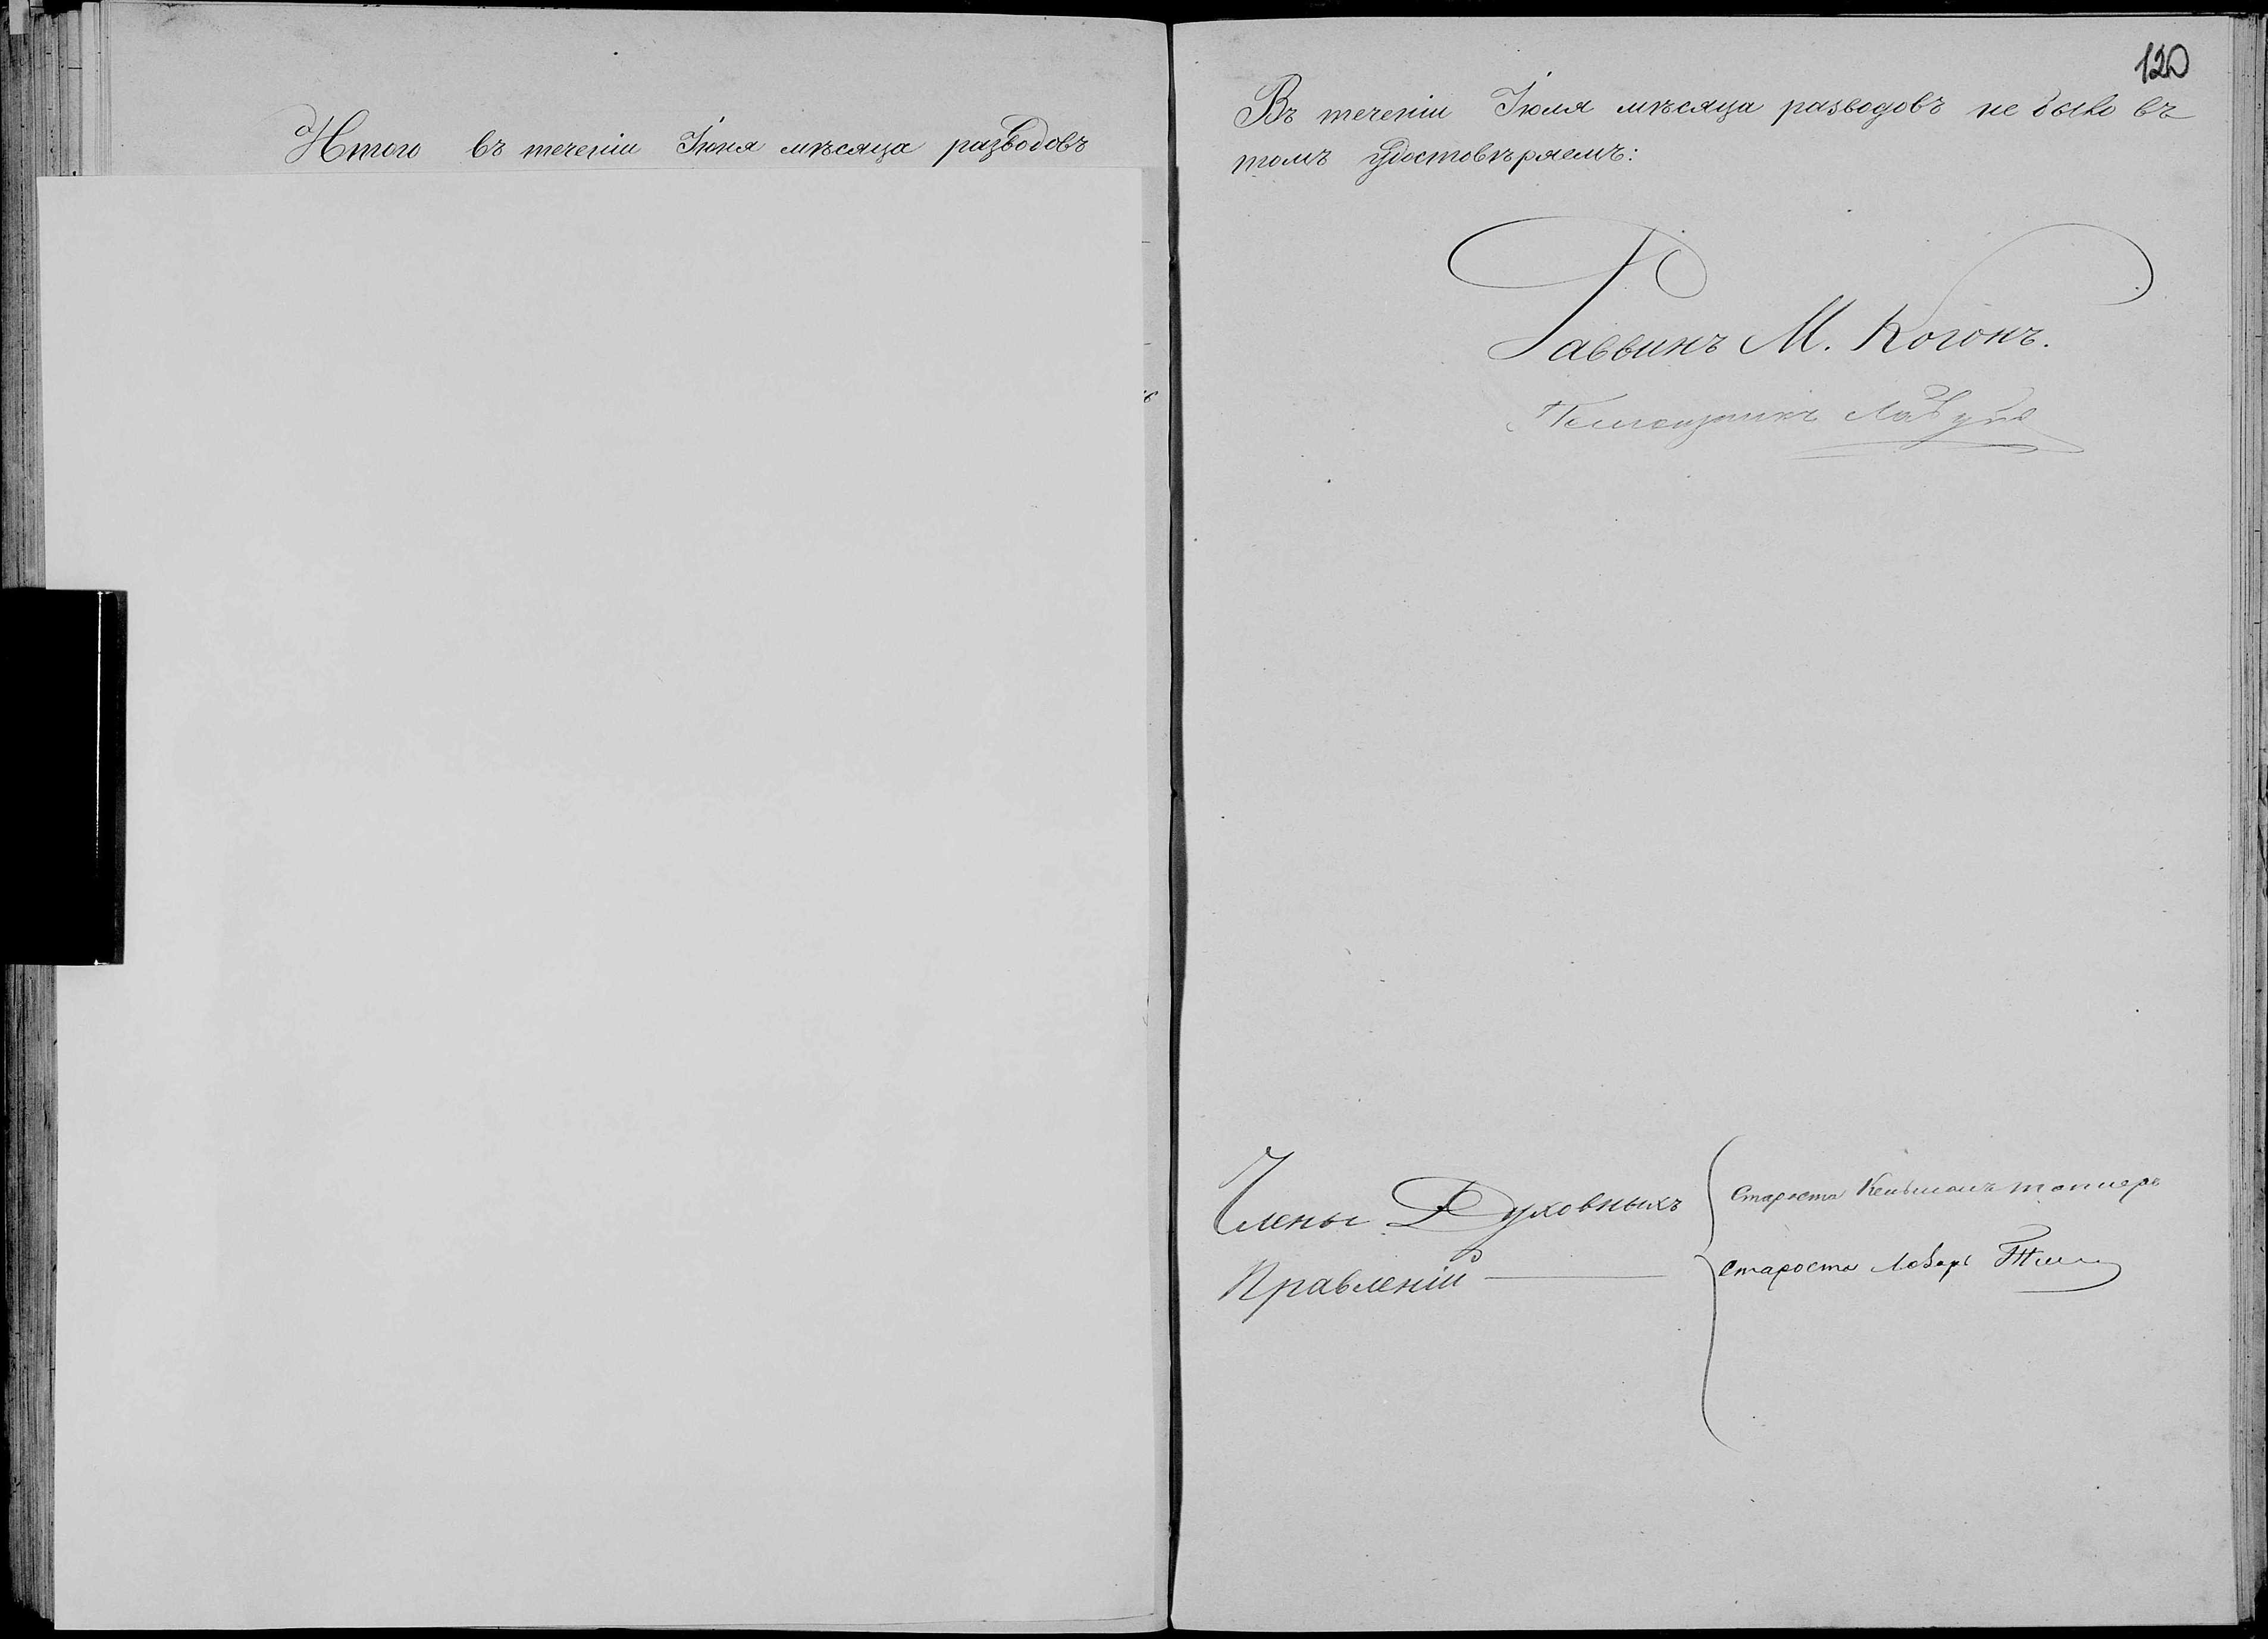 Итого въ теченіи Іюня мѣсяца разводовъ
120
Въ теченіи Іюля мѣсяца разводовъ не было въ
томъ удостовѣряемъ:
Раввинъ М. Когонъ.
Помощникъ
Члены Духовныхъ
Правленій
Староста Кельманъ
Староста Лейзеръ